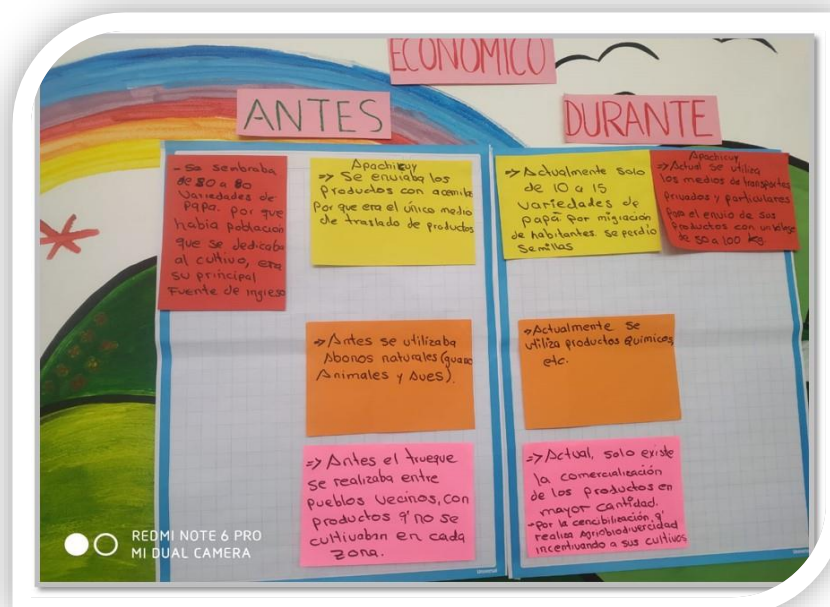 ECONOMICO
ANTES
- Se sembraba
de 50 a 80
Variedades de
Papa. Por que
había población
que se dedicaba
al cultivo, era
su principal
Fuente de ingreso
Apachicuy
=> Se enviaba los
Productos con acemila
Por que era el único medio
de traslado de productos
=> Antes se utilizaba
Abonos naturales (guano
Animales y Aves).
=> Antes el trueque
se realizaba entre
pueblos vecinos, con
productos q' no se
cultivaban en cada
zona.
DURANTE
=> Actualmente solo
de 10 a 15
variedades de
papa por migración
de habitantes se perdio
Semillas
Apachicuy
=> Actual se utiliza
los medios de transportes
privados y particulares
Para el envio de sus
Productos con un
de 50 a 100 kg.
=> Actualmente se
utiliza productos Quimicos,
etc.
=> Actual, solo existe
la comercialización
de los productos en
mayor cantidad.
- Por la cencibilización, q'
realiza Agriobiodivercidad
incentivando a sus cultivos
REDMI NOTE 6 PRO
MI DUAL CAMERA